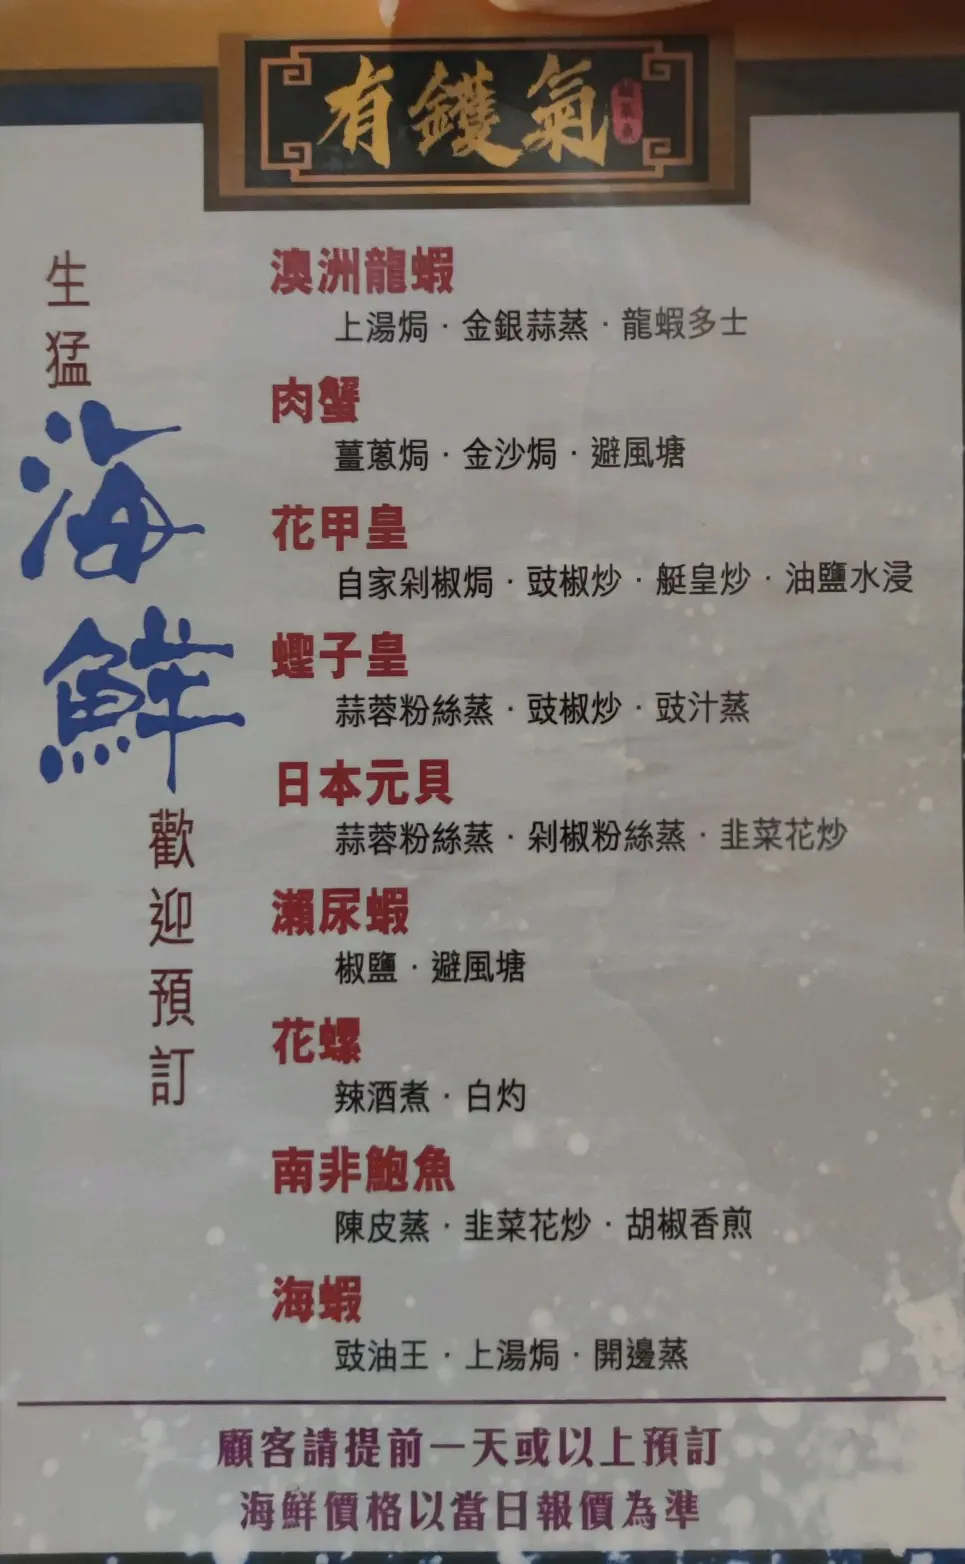 有鑊氣
生猛
海鮮
歡迎預訂
澳洲龍蝦
上湯焗·金銀蒜蒸·龍蝦多士
肉蟹
薑蔥焗·金沙焗·避風塘
花甲皇
自家剁椒焗·豉椒炒·艇皇炒·油鹽水浸
蟶子皇
蒜蓉粉絲蒸·豉椒炒·豉汁蒸
日本元貝
蒜蓉粉絲蒸·剁椒粉絲蒸·韭菜花炒
瀨尿蝦
椒鹽·避風塘
花螺
辣酒煮·白灼
南非鮑魚
陳皮蒸·韭菜花炒·胡椒香煎
海蝦
豉油王·上湯焗·開邊蒸
顧客請提前一天或以上預訂
海鮮價格以當日報價為準